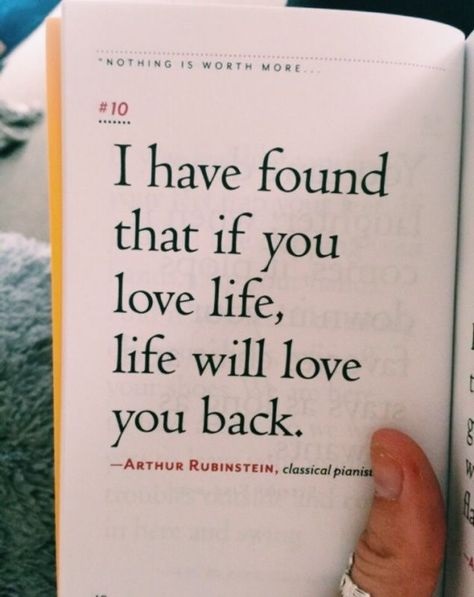 "NOTHING IS WORTH MORE...
#10
I have found
that if you
love life,
life will love
you back.
—ARTHUR RUBINSTEIN, classical pianist